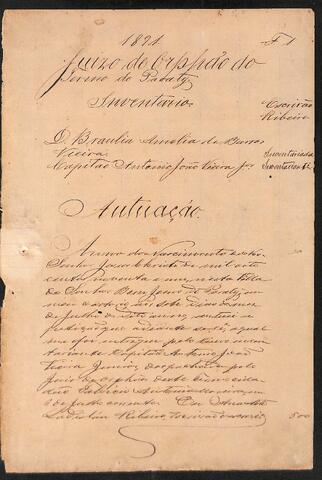 1891 F 1
Juizo de Orphão do
Termo de Paraty
Inventario
Escrivão
Ribeiro
D. Braulia Amelia de Barros
Vieira Inventariada
Capitão Antonio João Vieira Jor Inventariante
Autuação
Anno do Nascimento de Nosso
Senhor Jesus Christo de mil oito
centos noventa e um, nesta Villa
de São João de Paraty, em
meu cartorio, aos sete dias do mez
de Julho do dito anno, autuei a
petição que adiante se vê, a qual
me foi entregue pelo inven
tariante Capitão Antonio João
Vieira Junior, despachada pelo
Juiz de Orphãos deste termo cida
dão
6 de Julho corrente. Eu
Ladislau Ribeiro, Escrivão 500